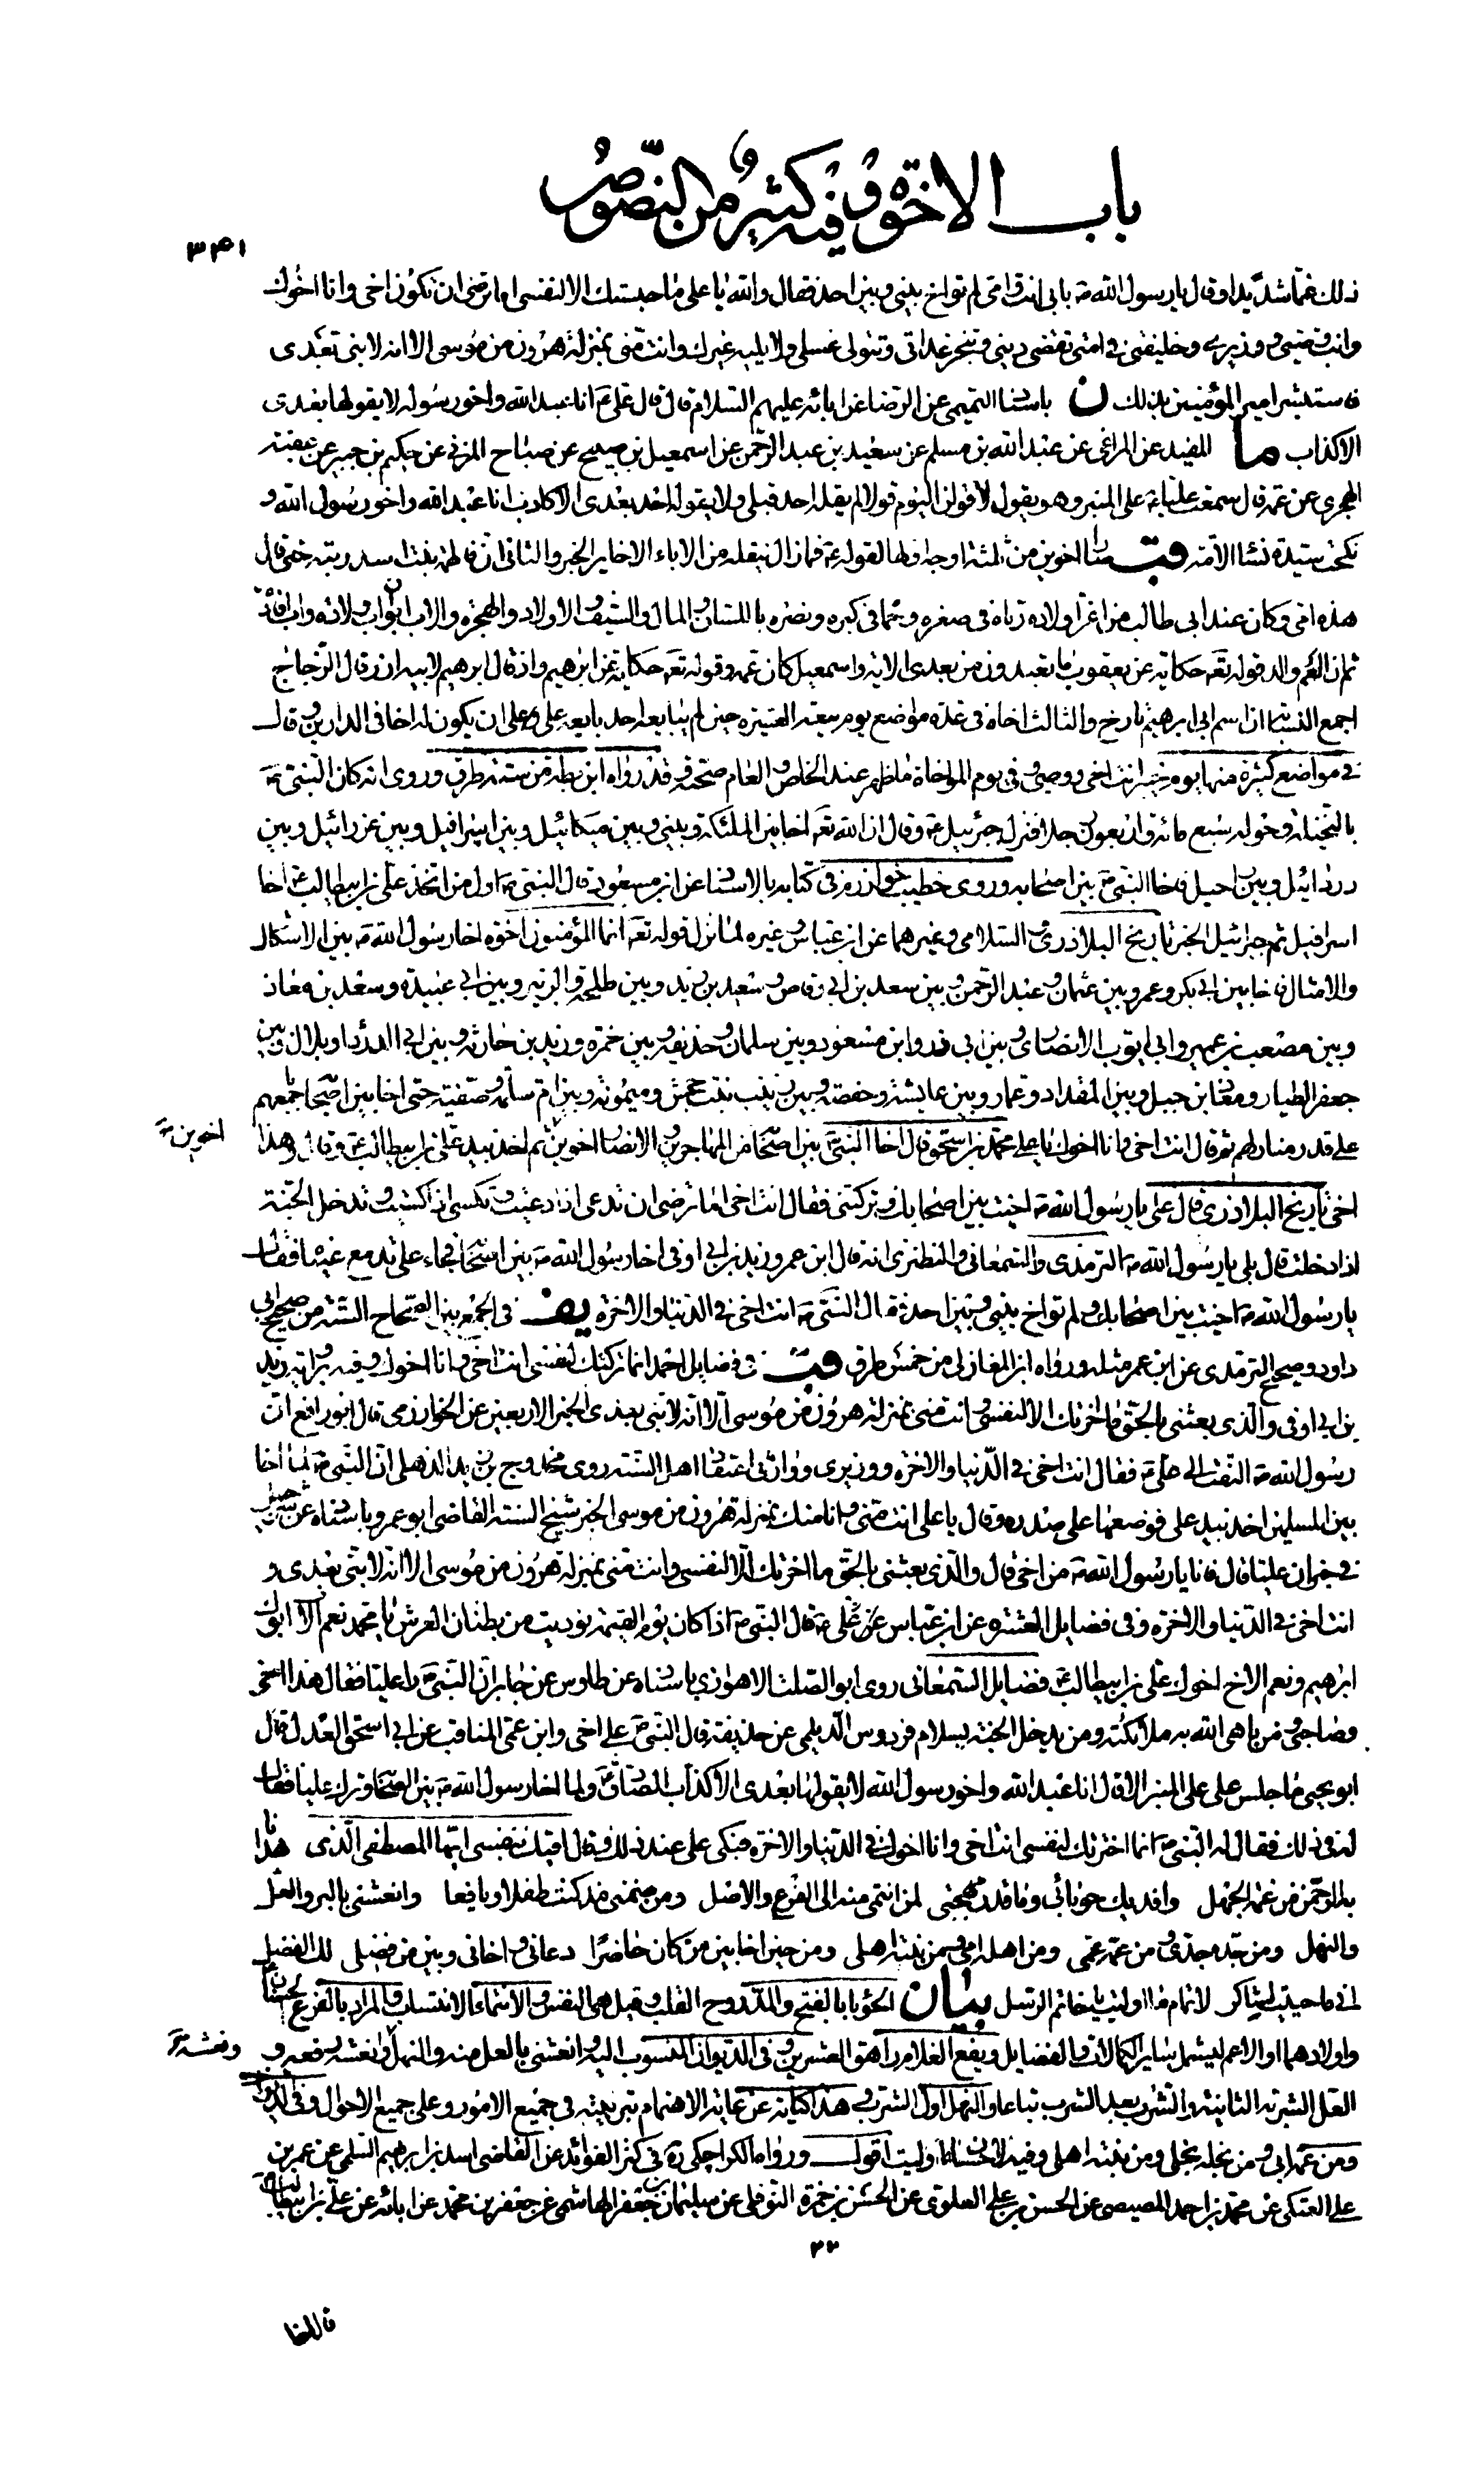 باب الاخوة وفيه كثير من النصوص
٣٤١
ذلك غما شديدا وقال يا رسول الله ص بابي انت وامي لم تواخ بيني وبين احد فقال والله يا علي ما حبستك الا لنفسي اما ترضى ان تكون اخي وانا اخوك
وانت وصيي ووزيري وخليفتي في امتي تقضي ديني وتنجز عداتي وتتولى غسلي ولا يليه غيرك وانت مني بمنزلة هرون من موسى الا انه لا نبي بعدي
فاستبشر امير المؤمنين بذلك ن باسناد التميمي عن الرضا عن ابائه عليهم السلام قال قال علي ع انا عبد الله واخو رسوله لا يقولها بعدي
الا كذاب ما المفيد عن المراغي عن عبد الله بن مسلم عن سعيد بن عبد الرحمن عن اسمعيل بن صبيح عن صباح المزني عن حكيم بن جبير عن عقبة
الهجري عن عمه قال سمعت عليا ع على المنبر وهو يقول لاقولن اليوم قولا لم يقله احد قبلي ولا يقوله احد بعدي الا كاذب انا عبد الله واخو رسول الله و
نكحت سيدة نساء الامة قب صارا اخوين من ثلثة اوجه اولها لقوله ع فما زال ينقله من الاباء الاخاير الخبر والثاني ان فاطمة بنت اسد ربته حتى قال
هذه امي وكان عند ابي طالب من اعز اولاده رباه في صغره وحماه في كبره ونصره باللسان والمال والسيف والاولاد والهجرة والاب ابوان اب ولادة واب افادة
ثم ان العم والد قوله تعه حكاية عن يعقوب ما تعبدون من بعدي الاية واسمعيل كان عمه وقوله تعه حكاية عن ابرهيم واذ قال ابرهيم لابيه ازر قال الزجاج
اجمع النسابة ان اسم ابي ابرهيم تارخ والثالث اخاه في عدة مواضع يوم بيعة العشيرة حين لم يبايعه احد بايعه علي ع على ان يكون له اخا في الدارين وقال
في مواضع كثيرة منها يوم خيبر انت اخي ووصيي وفي يوم المواخاة ما ظهر عند الخاص والعام صحته وقد رواه ابن بطة من ستة طرق وروي انه كان النبي ص
بالنخيلة وحوله سبع مائة واربعون رجلا فنزل جبرئيل ع وقال ان الله تعه اخا بين الملئكة وبيني وبين ميكائيل وبين اسرافيل وبين عزرائيل وبين
دردائيل وبين راحيل فاخا النبي ص بين اصحابه وروى خطيب خوارزم في كتابه بالاسناد عن ابن مسعود قال النبي ص اول من اتخذ علي بن ابيطالب ع اخا
اسرافيل ثم جبرائيل الخبر تاريخ البلاذري والسلامي وغيرهما عن ابن عباس وغيره لما نزل قوله تعه انما المؤمنون اخوة اخا رسول الله ص بين الاشكال
والامثال فاخا بين ابي بكر وعمر وبين عثمان وعبد الرحمن وبين سعد بن ابي وقاص وسعيد بن زيد وبين طلحة والزبير وبين ابي عبيدة وسعد بن معاذ
وبين مصعب بن عمير وابي ايوب الانصاري وبين ابي ذر وابن مسعود وبين سلمان وحذيفة وبين حمزة وزيد بن حارثة وبين ابي الدرداء وبلال وبين
جعفر الطيار ومعاذ بن جبل وبين المقداد وعمار وبين عايشة وحفصة وبين زينب بنت جحش وميمونة وبين ام سلمة وصفية حتى اخا بين اصحابه اجمعهم
على قدر منازلهم ثم قال انت اخي وانا اخوك يا علي محمد بن اسحق قال اخا النبي ص بين اصحابه من المهاجرين والانصار اخوين ثم اخذ بيد علي بن ابيطالب ع وقال وهذا
اخوين
اخي تاريخ البلاذري قال علي يا رسول الله ص اخيت بين اصحابك وتركتني فقال انت اخي اما ترضى ان تدعى اذا دعيت وتكسى اذا كسيت وتدخل الجنة
اذا دخلت قال بلى يا رسول الله ص الترمذي والسمعاني والنطنزي انه قال ابن عمر وزيد بن ابي اوفى اخا رسول الله ص بين اصحابه فجاء علي تدمع عيناه فقال
يا رسول الله ص اخيت بين اصحابك ولم تواخ بيني وبين احد فقال النبي ص انت اخي في الدنيا والاخرة يف في الجمع بين الصحاح الستة من صحيح ابي
داود وصحيح الترمذي عن ابن عمر مثله ورواه ابن المغازلي من خمس طرق قب في فضايل احمد انما تركتك لنفسي انت اخي وانا اخوك وفيه برواية زيد
بن ابي اوفى والذي بعثني بالحق ما اخرتك الا لنفسي وانت مني بمنزلة هرون من موسى الا انه لا نبي بعدي الخبر الاربعين عن الخوارزمي قال ابو رافع ان
رسول الله ص التفت الى علي ع فقال انت اخي في الدنيا والاخرة ووزيري ووارثي اعتقاد اهل السنة روى مخدوج بن زيد الذهلي ان النبي ص لما اخا
بين المسلمين اخذ بيد علي فوضعها على صدره وقال يا علي انت مني وانا منك بمنزلة هرون من موسى الخبر شيخ السنة القاضي ابو عمرو باسناده عن شرحبيل
في خبر ان عليا قال فانا يا رسول الله ص من اخي قال والذي بعثني بالحق ما اخرتك الا لنفسي وانت مني بمنزلة هرون من موسى الا انه لا نبي بعدي و
انت اخي في الدنيا والاخرة وفي فضايل العشرة عن ابن عباس عن علي ع قال النبي ص اذا كان يوم القيمة نوديت من بطنان العرش يا محمد نعم الاب ابوك
ابرهيم ونعم الاخ اخوك علي بن ابيطالب ع فضايل السمعاني روى ابو الصلت الاهوازي باسناده عن طاوس عن جابر ان النبي ص راى عليا فقال هذا اخي
وصاحبي ومن باهى الله به ملائكته ومن يدخل الجنة بسلام فردوس الديلمي عن حذيفة قال النبي ص علي اخي وابن عمي المناقب عن ابي اسحق العدل قال
ابو يحيى ما جلس علي على المنبر الا قال انا عبد الله واخو رسول الله لا يقولها بعدي الا كذاب الصادق ع ولما اخا رسول الله ص بين الصحابة وترك عليا فقال
له في ذلك فقال له النبي ص انما اخترتك لنفسي انت اخي وانا اخوك في الدنيا والاخرة فبكى علي عند ذلك وقال اقيك بنفسي ايها المصطفى الذي هدانا
به الرحمن من غمه الجهل وافديك حوبائي وما قدر مهجتي لمن انتمي منه الى الفرع والاصل ومن ضمني مذ كنت طفلا ويافعا وانعشني بالبر والعل
والنهل ومن جده جدي ومن عمه عمي ومن اهله امي ومن بنته اهلي ومن حين اخا بين من كان حاضرا دعاني واخاني وبين من فضلي لك الفضل
اني ما حييت لشاكر لاتمام ما اوليت يا خاتم الرسل بيان الحوباء بالفتح والمد روح القلب وقيل هي النفس والانتماء الانتساب والمراد بالفرع الحسنان
واولادهما او الاعم ليشمل ساير الكمالات والفضايل ويفع الغلام راهق العشرين وفي الديوان المنسوب اليه وانعشني بالعل منه والنهل وانعشه رفعه و
ونعشه
العل الشربة الثانية والشرب بعد الشرب تباعا والنهل اول الشرب وهذا كناية عن غاية الاهتمام بتربيته في جميع الامور وعلى جميع الاحوال وفي الديوان
ومن عم ابي ومن نجله نجلي ومن بنته اهلي وفيه لاحسان ما اوليت اقول ورواه الكراجكي ره في كنز الفوائد عن القاضي اسد بن ابرهيم السلمي عن عمر بن
علي العتكي عن محمد بن احمد المصيصي عن الحسن بن علي العلوي عن الحسن بن حمزة النوفلي عن سليمان بن جعفر الهاشمي عن جعفر بن محمد عن ابائه عن علي بن ابيطالب
٣٣